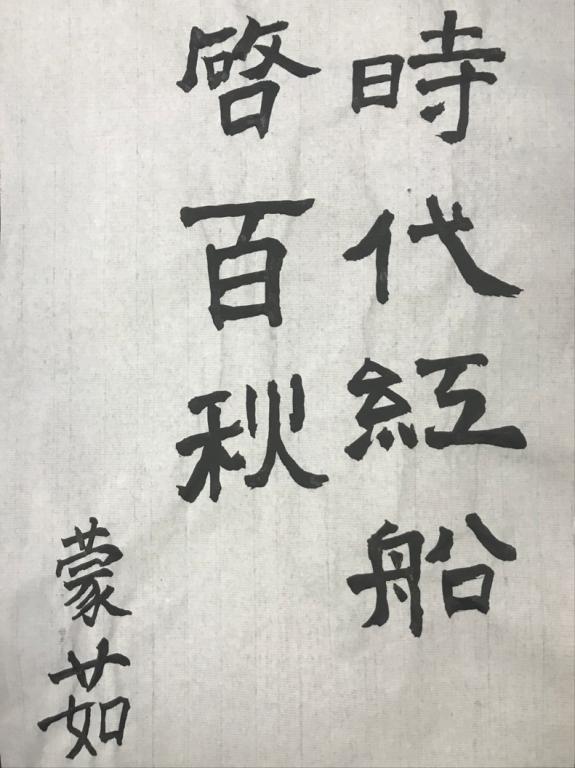 時代紅船
啓百秋
蒙茹